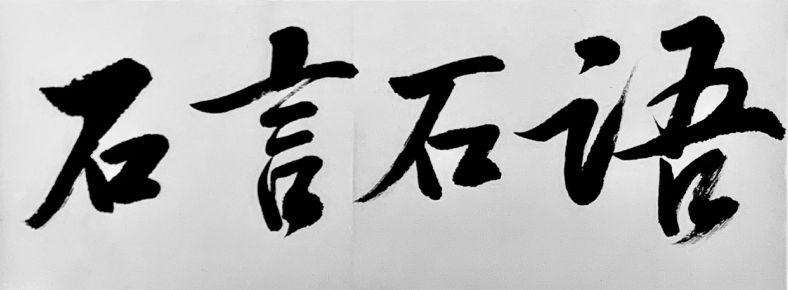 石言石语